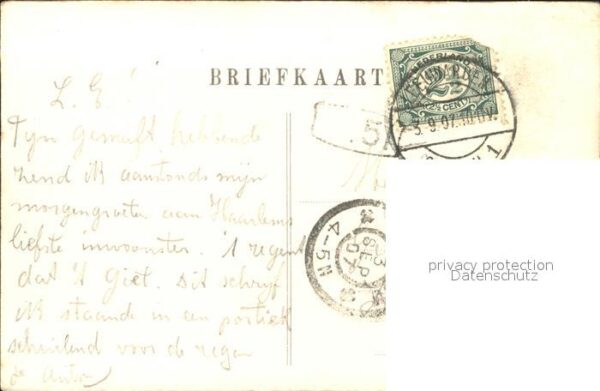 BRIEFKAART
NEDERLAND
2½ CENT
LEEUWARDEN
3.9.07.10.0V.
1
5
L. E.!
Fijn gemaft hebbende
zend ik aanstonds mijn
morgengroeten aan Haarlems
liefste inwoonster. 't regent
dat 't giet. Dit schrijf
ik staande in een portiek
schuilend voor de regen
je Anton
4-5N
3
SEP
07
privacy protection
Datenschutz